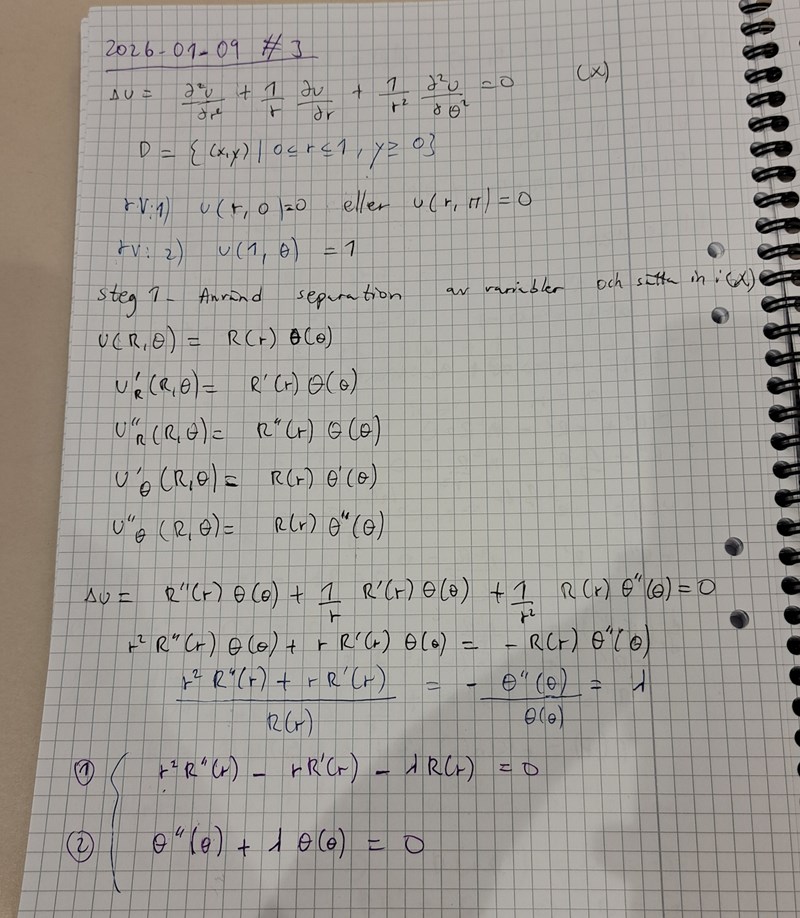 2026-01-09 #3
ΔU = ∂²U/∂r² + 1/r ∂U/∂r + 1/r² ∂²U/∂θ² = 0 (x)
D = {(x,y) | 0 ≤ r ≤ 1, y ≥ 0}
rV:1) U(r, 0) = 0 eller U(r, π) = 0
rv: 2) U(1, θ) = 1
Steg 1 - Använd separation av variabler och sätta in i (x)
U(R,θ) = R(r) θ(θ)
U'R (R,θ) = R'(r) θ(θ)
U"R (R,θ) = R"(r) θ(θ)
U'θ (R,θ) = R(r) θ'(θ)
U"θ (R,θ) = R(r) θ"(θ)
ΔU = R"(r) θ(θ) + 1/r R'(r) θ(θ) + 1/r² R(r) θ"(θ) = 0
r² R"(r) θ(θ) + r R'(r) θ(θ) = - R(r) θ"(θ)
(r² R"(r) + r R'(r))/R(r) = - θ"(θ)/θ(θ) = λ
① { r² R"(r) - r R'(r) - λ R(r) = 0
② θ"(θ) + λ θ(θ) = 0